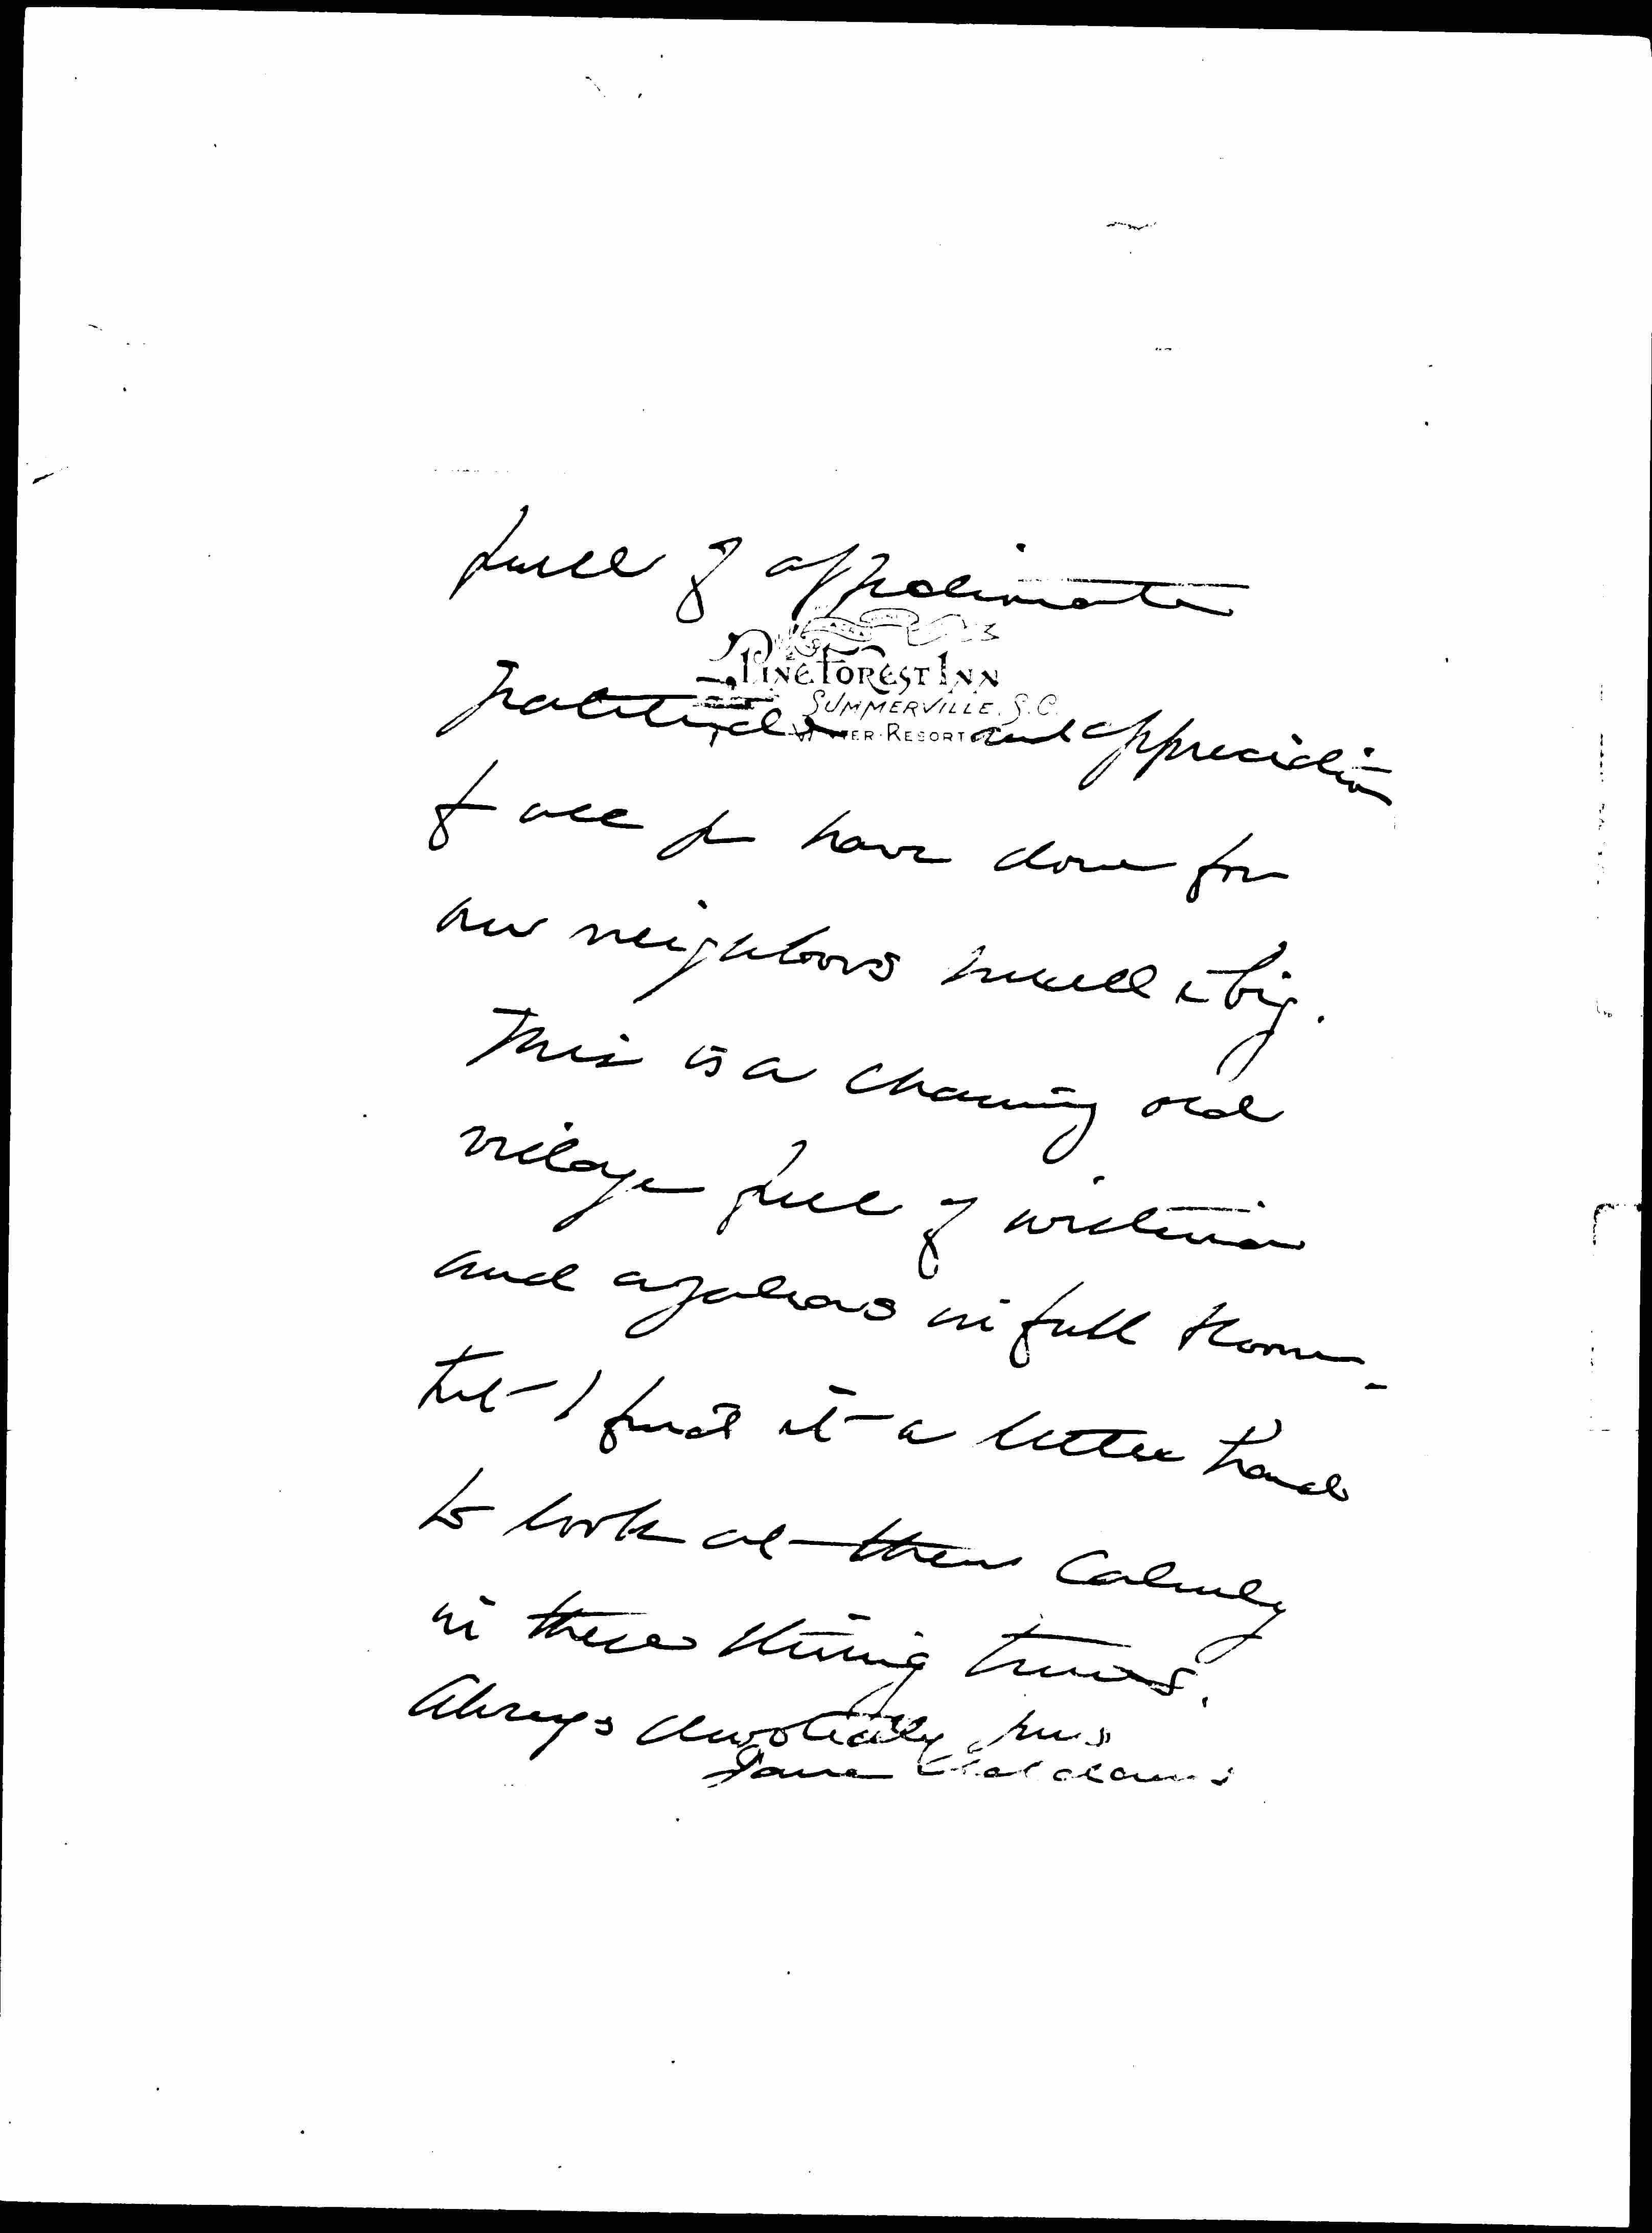 full of affectionate
PINE FOREST INN
SUMMERVILLE, S.C.
WINTER RESORT
gratitude and appreciation
of all you have done for
our neighbors small & big.
This is a charming old
village full of wisteria
and azaleas in full bloom -
but I find it a little hard
to look at them calmly
in these stirring times.
Always devotedly yours